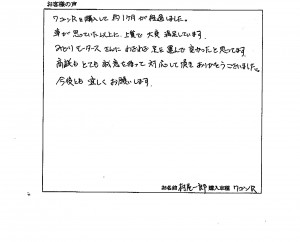 お客様の声
ワゴンRを購入して約1ヶ月が経過しました。
車が思っていた以上に上質で大変満足しています。
みどりモータースさんにおまかせして良かったと思ってます。
商談もとても誠意を持って対応して頂きありがとうございました。
今後とも宜しくお願いします。
お名前 一郎 購入車種 ワゴンR